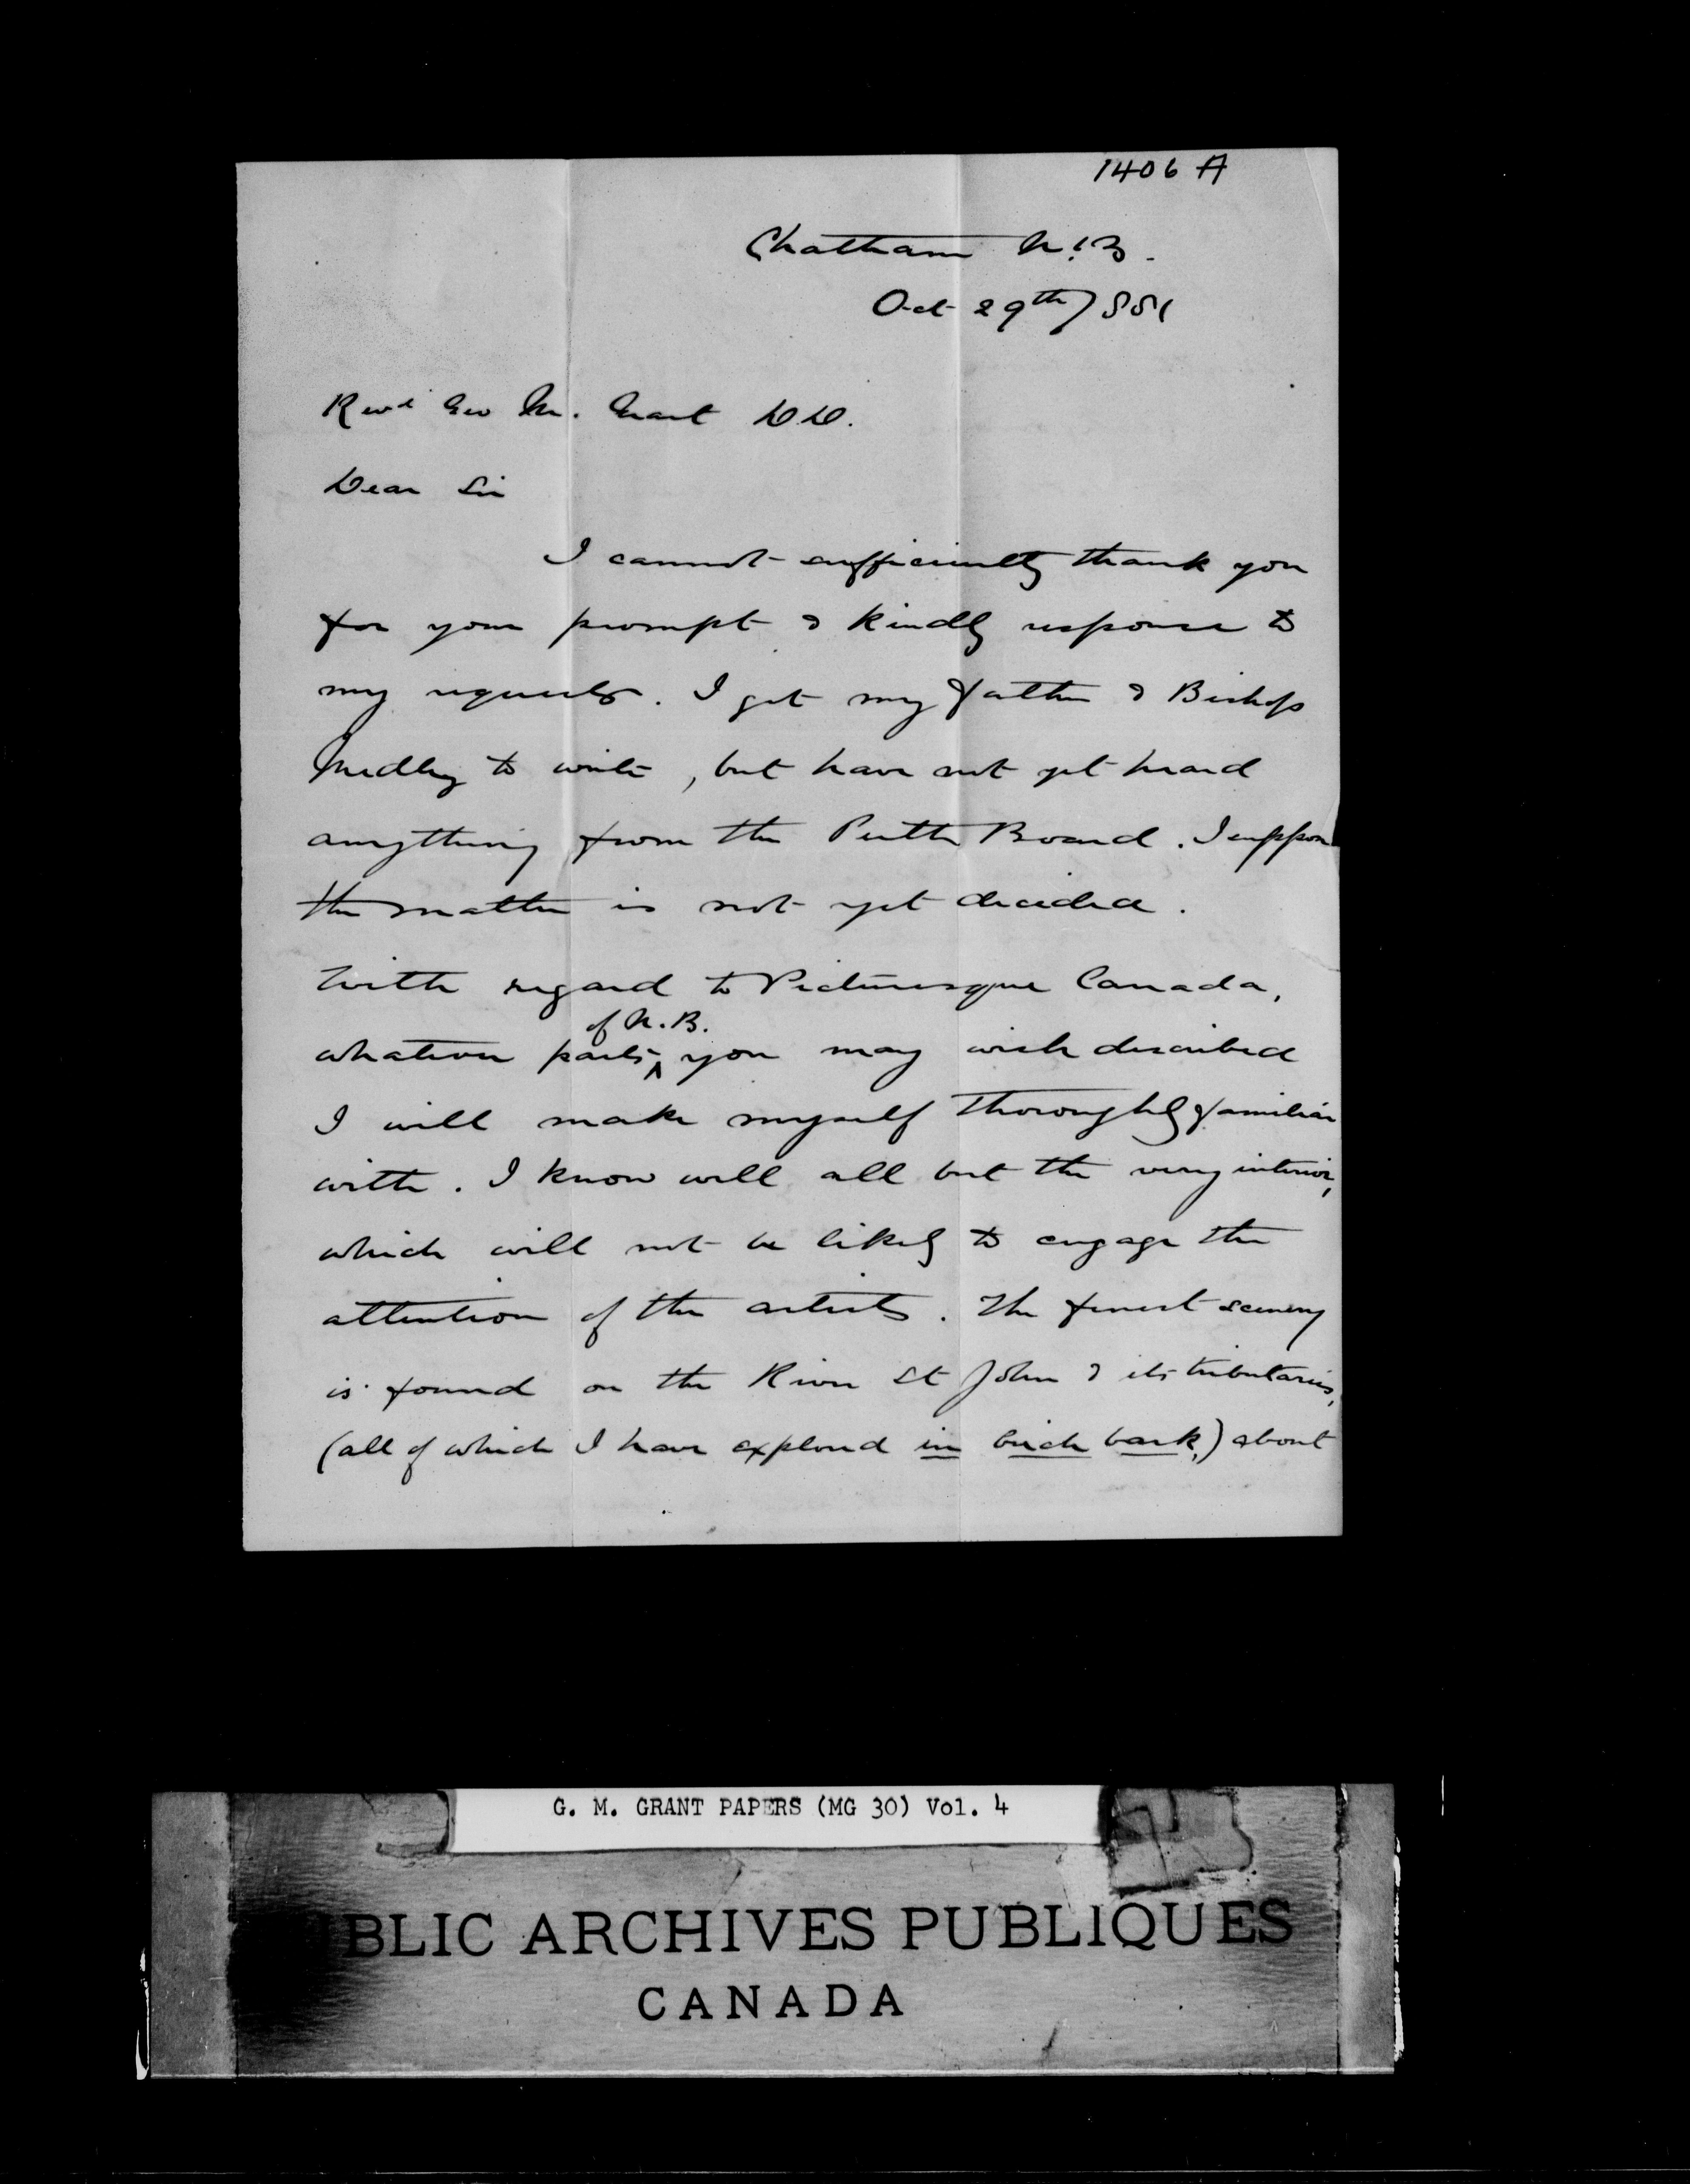 1406 A
Chatham N.B.
Oct 29th 1881
Revd Geo M. Grant DD.
Dear Sir
I cannot sufficiently thank you
for your prompt & kindly response to
my requests. I got my father & Bishop
Medley to write, but have not yet heard
anything from the Perth Board. I suppose
the matter is not yet decided.
With regard to Picturesque Canada,
of N.B.
whatever parts ^ you may wish described
I will make myself thoroughly familiar
with. I know well all but the very interior,
which will not be likely to engage the
attention of the artists. The finest scenery
is found on the River St John & its tributaries,
(all of which I have explored in birch bark,) about
G. M. GRANT PAPERS (MG 30) Vol. 4
BLIC ARCHIVES PUBLIQUES
CANADA